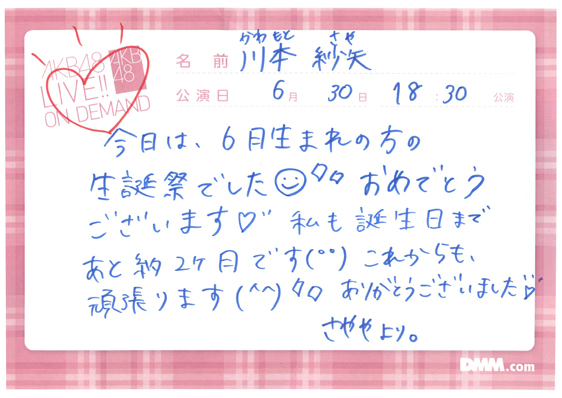 AKB48
LIVE!!
ON DEMAND
AKB
48
かわもと さや
名前 川本 紗矢
公演日 6月 30日 18:30 公演
今日は、6月生まれの方の
生誕祭でした☺ おめでとう
ございます♡ 私も誕生日まで
あと約2ヶ月です(°°) これからも、
頑張ります(^^) ありがとうございました♡
さややより。
DMM.com